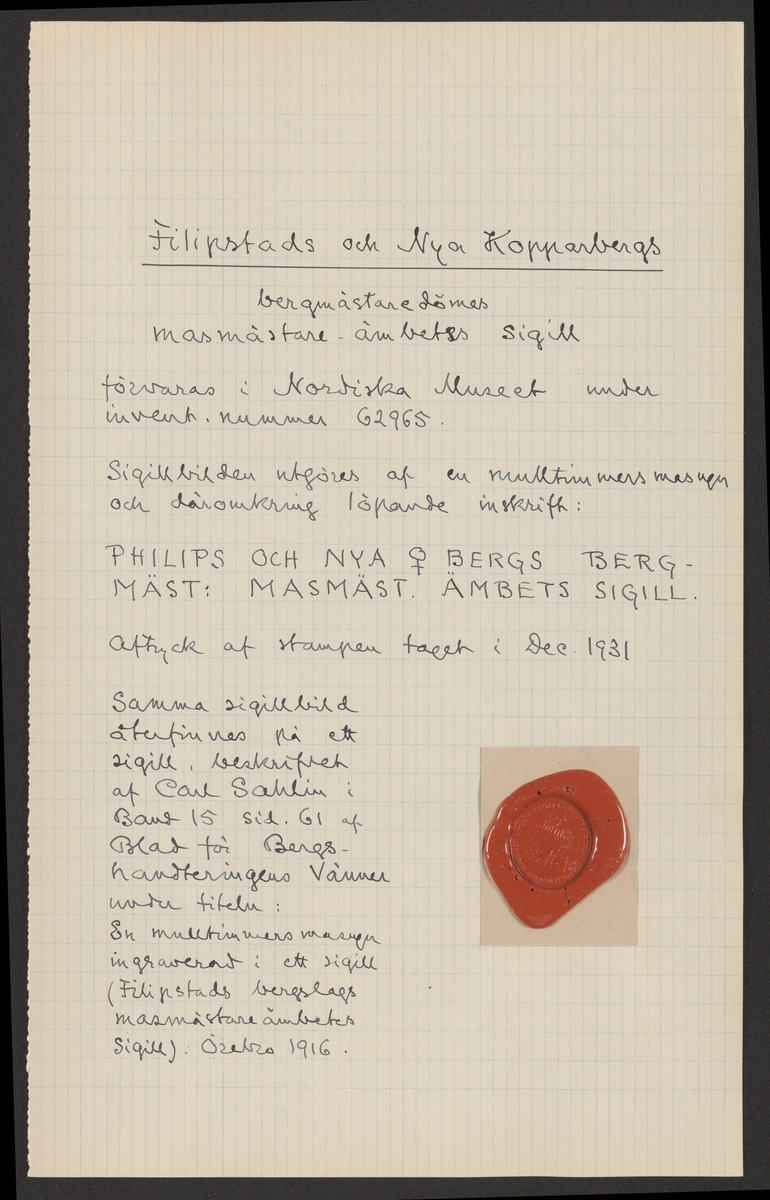 Filipstads och Nya Kopparbergs
bergmästaredömes
masmästare-ämbetes sigill
förvaras i Nordiska Museet under
invent. nummer 62965.
Sigillbilden utgöres af en mulltimmersmasugn
och däromkring löpande inskrift:
PHILIPS OCH NYA ♀ BERGS BERG-
MÄST: MASMÄST. ÄMBETS SIGILL.
Aftryck af stampen taget i Dec. 1931
Samma sigillbild
återfinnes på ett
sigill, beskrifvet
af Carl Sahlin i
Band 15 sid. 61 af
Blad för Bergs-
handteringens Vänner
under titeln:
En mulltimmersmasugn
ingraverad i ett sigill
(Filipstads bergslags
masmästareämbetes
Sigill). Örebro 1916.